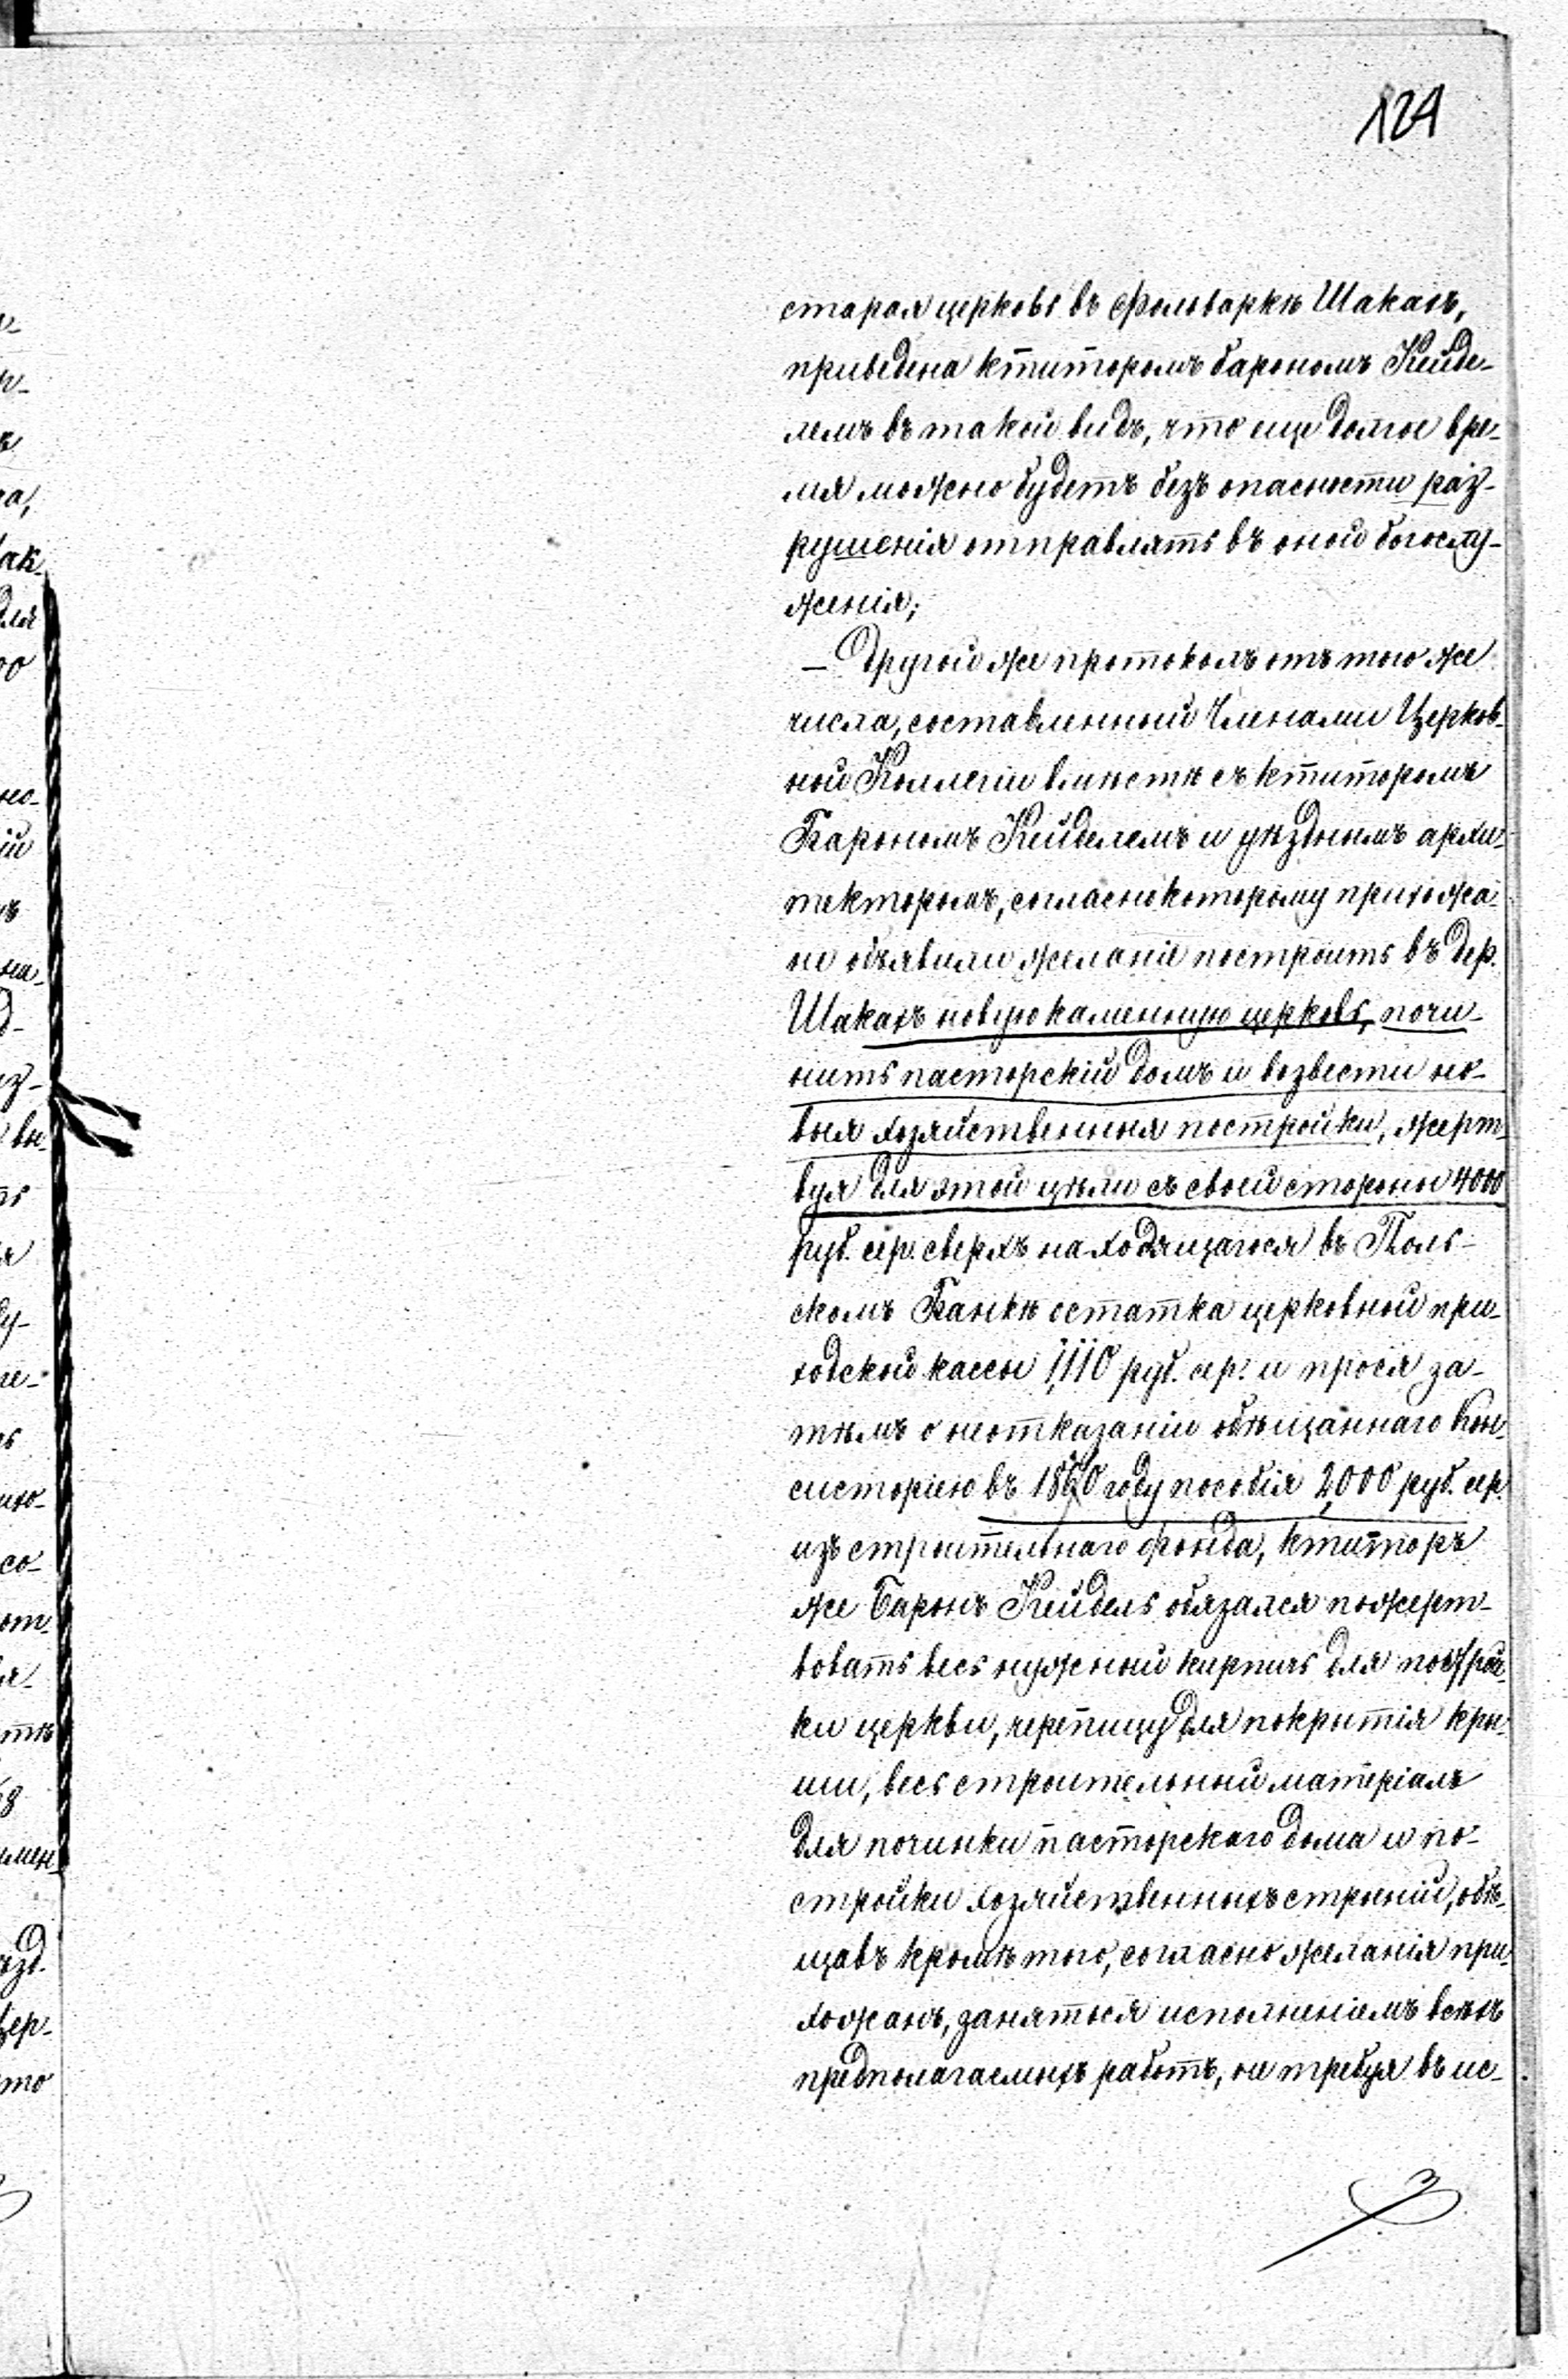 124
старая церковь въ фольваркѣ Шакахъ,
приведена ктиторомъ барономъ Кейде-
лемъ въ такой видъ, что еще долгое вре-
мя можно будетъ безъ опасности раз-
рушенія отправлять въ оной богослу-
женія;
— Другой же протоколъ отъ того же
числа, составленный Членами Церков-
ной Коллегіи вмѣстѣ съ ктиторомъ
Барономъ Кейделемъ и уѣзднымъ архи-
текторомъ, согласно которому прихожа-
не объявили желаніе построить въ дер.
Шакахъ новую каменную церковь, почи-
нить пасторскій домъ и возвести но-
выя хозяйственныя постройки, жерт-
вуя для этой цѣли съ своей стороны 4000
руб. сер. сверхъ находящагося въ Поль-
скомъ Банкѣ остатка церковной при-
ходской кассы 1,110 руб. сер. и прося за-
тѣмъ о неотказаніи обѣщаннаго Кон-
систоріею въ 1860 году пособія 2,000 руб. сер.
изъ строительнаго фонда, ктиторъ
же Баронъ Кейдель обязался пожерт-
вовать весь нужный кирпичъ для построй-
ки церкви, черепицу для покрытія кры-
ши, весь строительный матеріалъ
для починки пасторскаго дома и по-
стройки хозяйственныхъ строеній, обѣ-
щавъ кромѣ того, согласно желанія при-
хожанъ, заняться исполненіемъ всѣхъ
предполагаемыхъ работъ, не требуя въ ис-